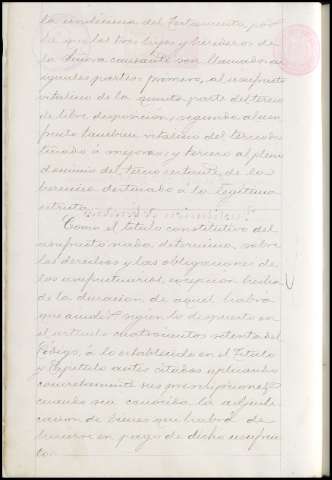 la existencia del Testamento, por
de que las tres hijas y herederas de
la Señora causante son llamadas en
iguales partes primero, al usufructo
vitalicio de la quinta parte del tercio
de libre disposición, segundo al usu-
fructo tambien vitalicio del tercio des-
tinado á mejoras; y tercero al pleno
dominio del tercio restante, de la
herencia destinado á la legítima
estricta.
Como el título constitutivo del
usufructo nada determina, sobre
los derechos y las obligaciones de
los usufructuarios, excepción hecha
de la duracion de aquel habrá
que acudir según lo dispuesto en
el artículo cuatrocientos setenta del
Código, á lo establecido en el Título
y Capítulo antes citados aplicando
concretamente sus prescripciones
cuando sea conocida la adjudi-
cacion de bienes que habrá de
hacerse en pago de dicho usufruc-
to.